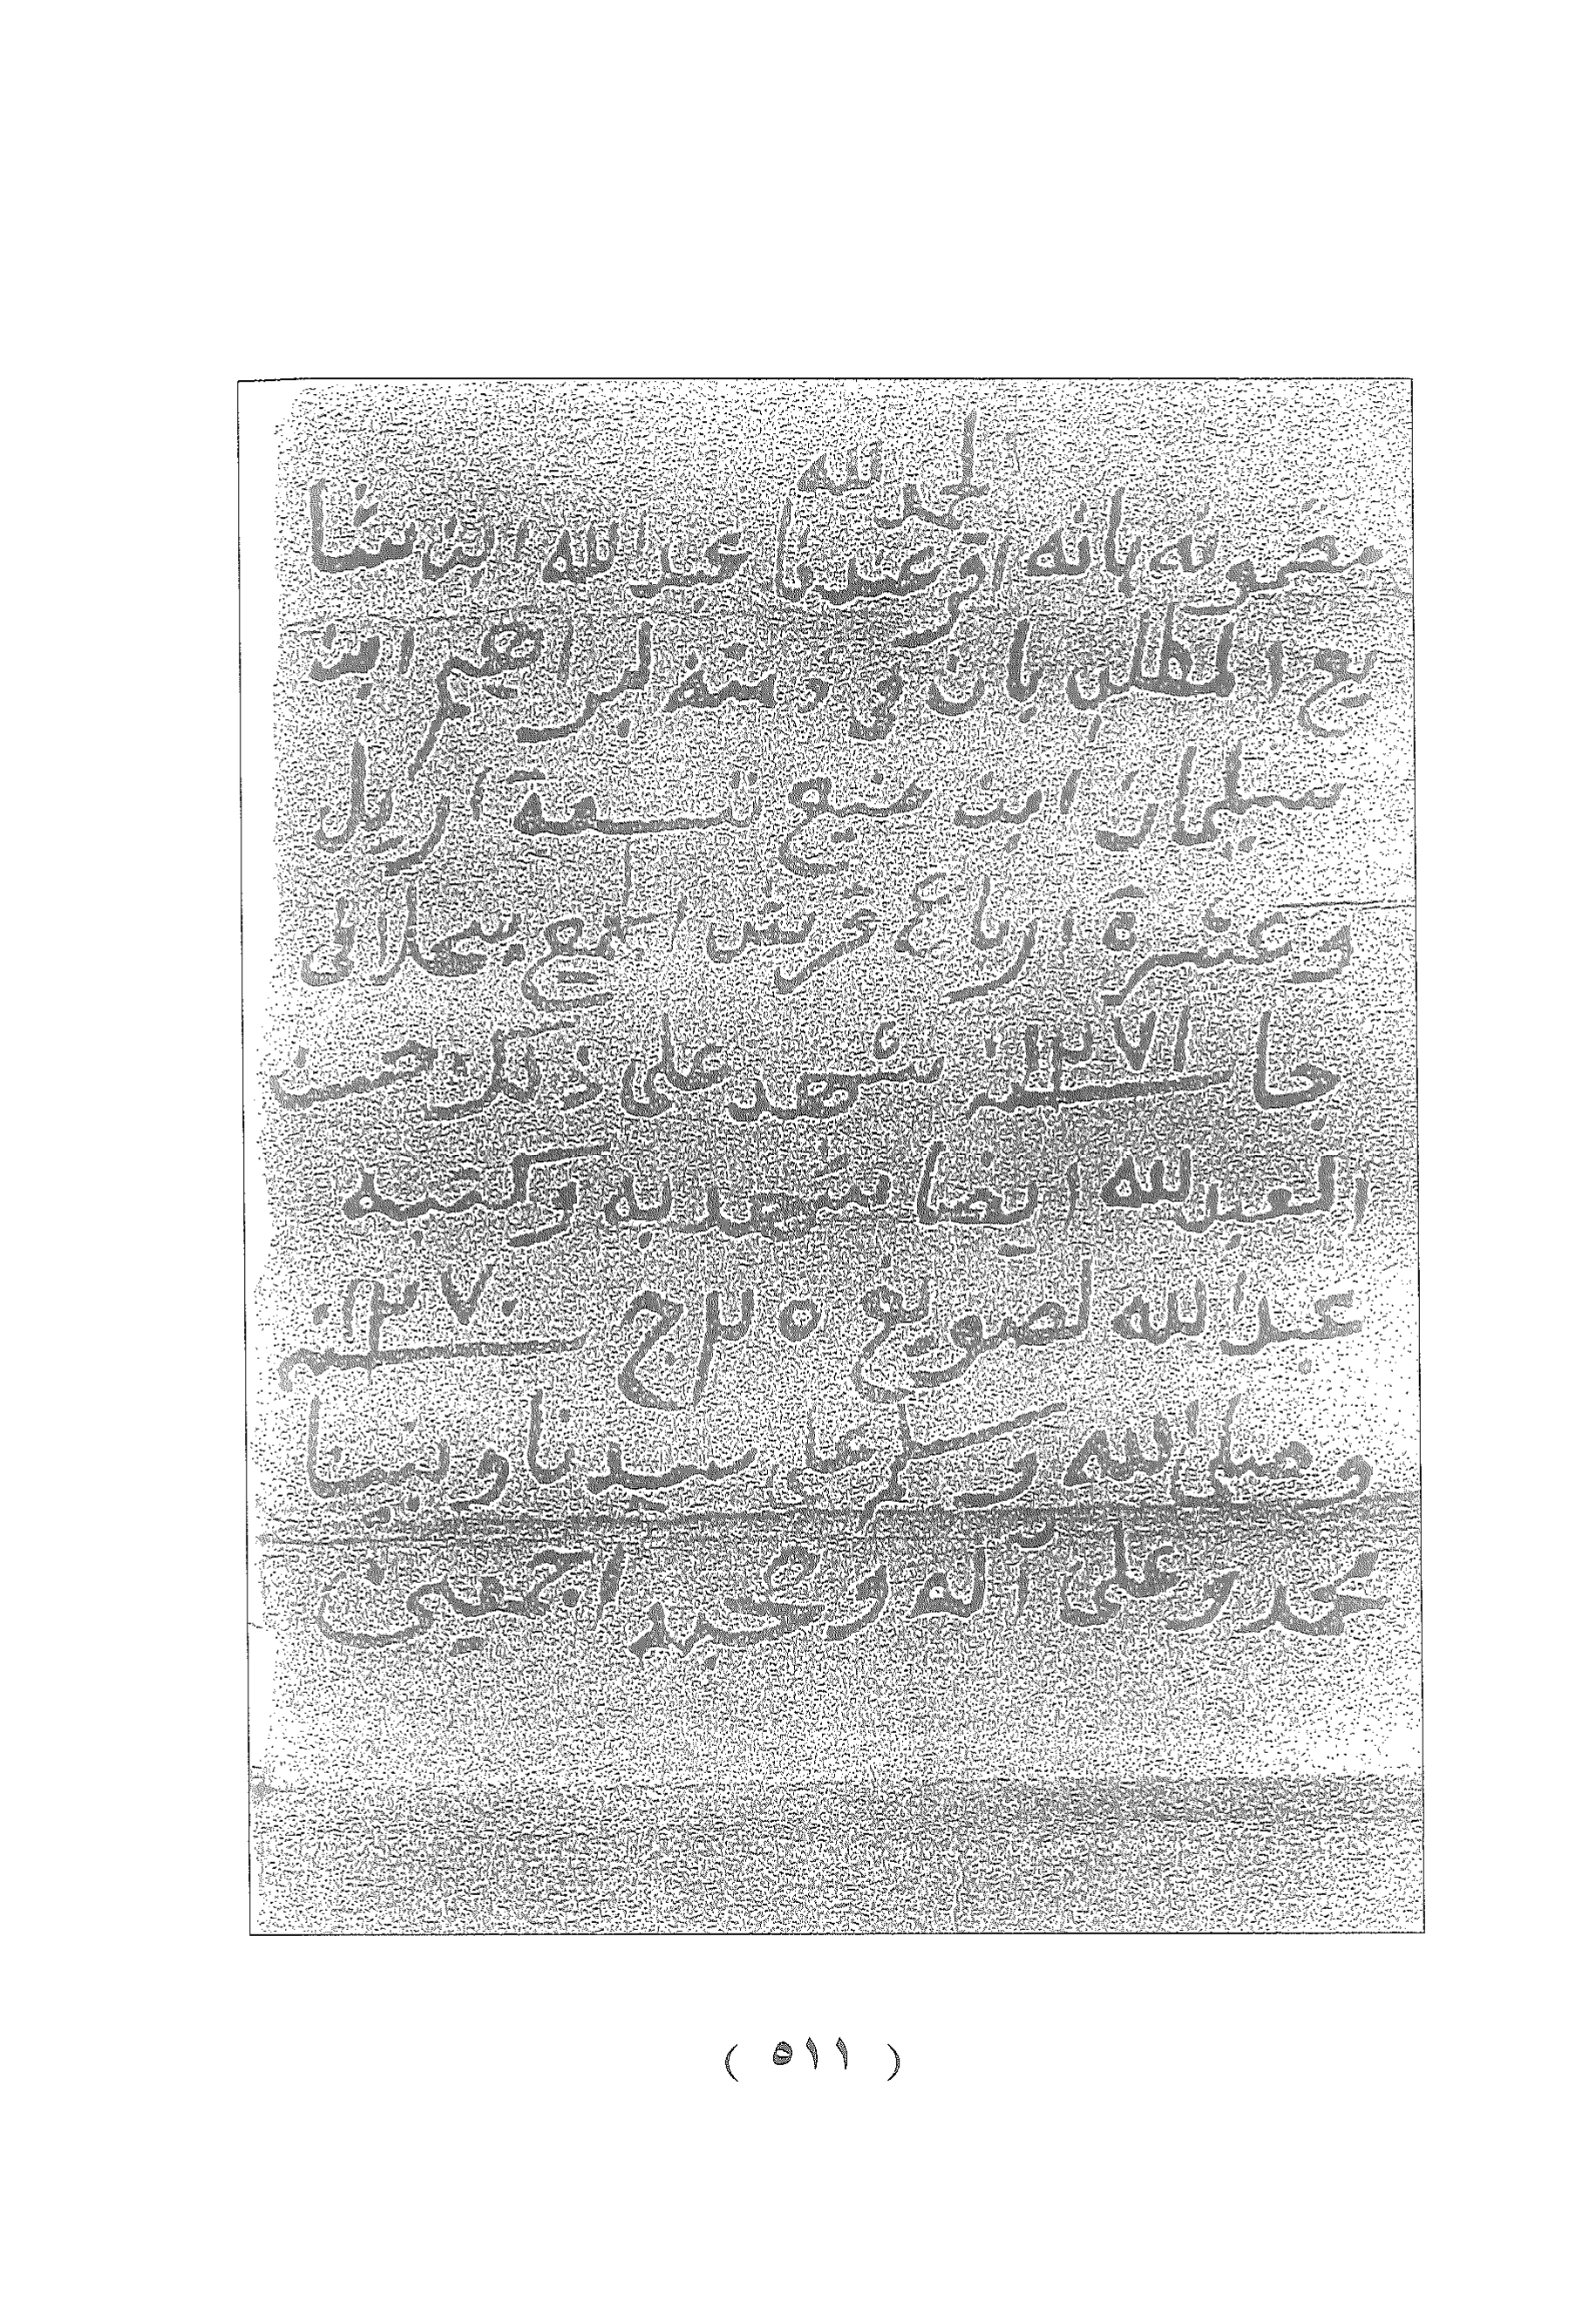 الحمد لله
مضمونه بانه اقر عندنا عبدالله ابن شا
يع المطلق بان في ذمته لبراهيم ابن
سليمان ابن منيع تسعة اريل
وعشرة ارباع قرش الجميع يحلن في
جا سنة ١٢٧١ شهد على ذلك حسن
العبدلله ايضا شهد به وكتبه
عبدالله لصويغ ٢٥ ج سنة ١٢٧٠
وصلى الله وسلم على سيدنا ونبينا
محمد وعلى آله وصحبه اجمعين
( ٥١١ )